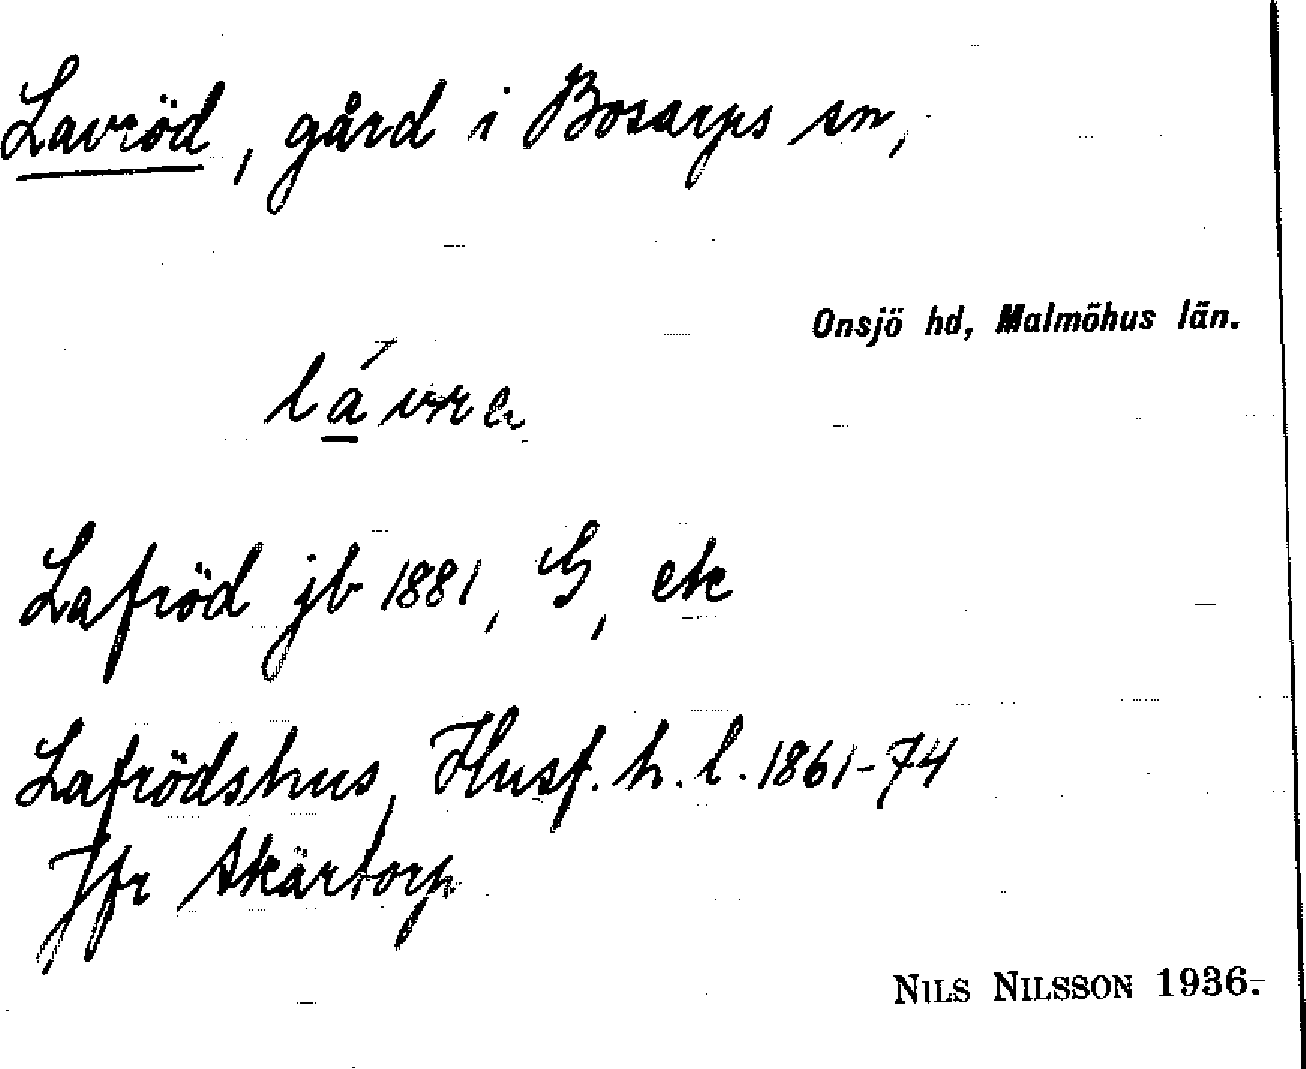 Lavröd, gård i Bosarps sn,
Onsjö hd, Malmöhus län.
Lafröd jb 1881, G, etc
Lafrödshus, Husf. h. l. 1861-74
Jfr Skärtorp
NILS NILSSON 1936.